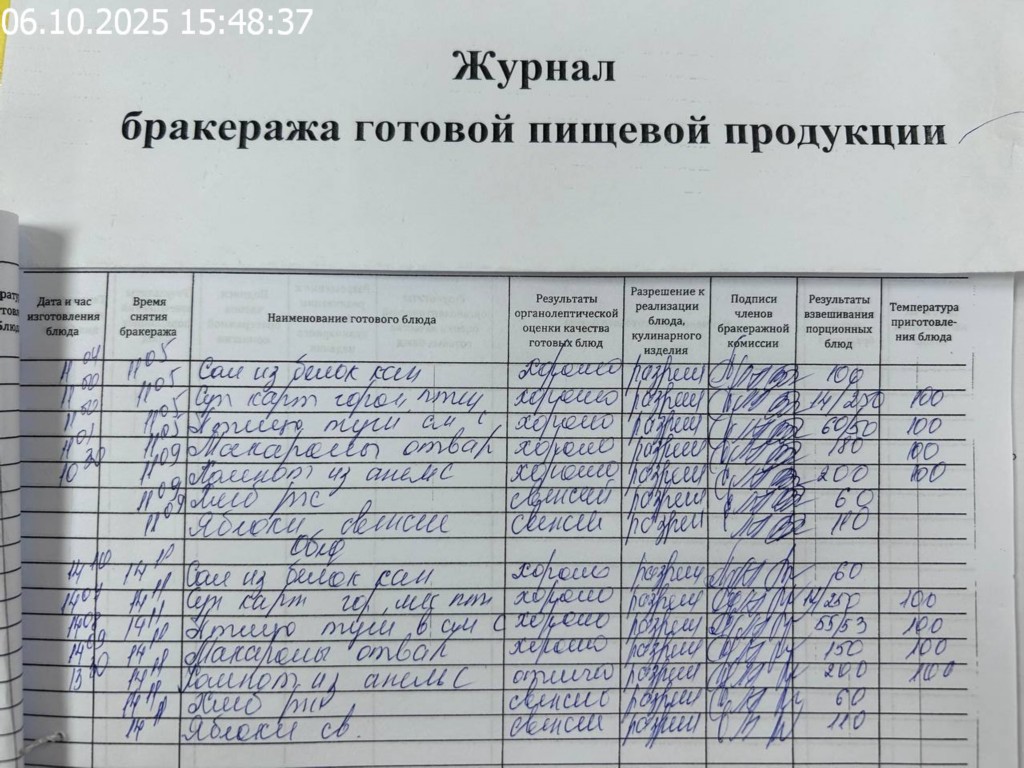 06.10.2025 15:48:37
Журнал
бракеража готовой пищевой продукции
Дата и час изготовления блюда
Время снятия бракеража
Наименование готового блюда
Результаты органолептической оценки качества готовых блюд
Разрешение к реализации блюда, кулинарного изделия
Подписи членов бракеражной комиссии
Результаты взвешивания порционных блюд
Температура приготовле-ния блюда
11 05 Сал из белок кап хорошо разреш 100
11 05 Суп карт горох птиц хорошо разреш 14/250 100
11 05 Птица туш см с хорошо разреш 60/50 100
11 09 Макароны отвар хорошо разреш 180 100
10 30 Компот из апельс хорошо разреш 200 100
11 09 Хлеб рж свежий разреш 60
11 Яблоки свежие свежий разреш 110
Обед
14 10 14 11 Сал из белок кап хорошо разреш 60
14 14 11 Суп карт гор птиц хорошо разреш 14/250 100
14 08 14 11 Птица туш в см с хорошо разреш 55/53 100
14 09 14 11 Макароны отвар хорошо разреш 150 100
13 30 14 11 Компот из апельс отлично разреш 200 100
14 11 Хлеб рж свежий разреш 60
14 11 Яблоки св. свежий разреш 110